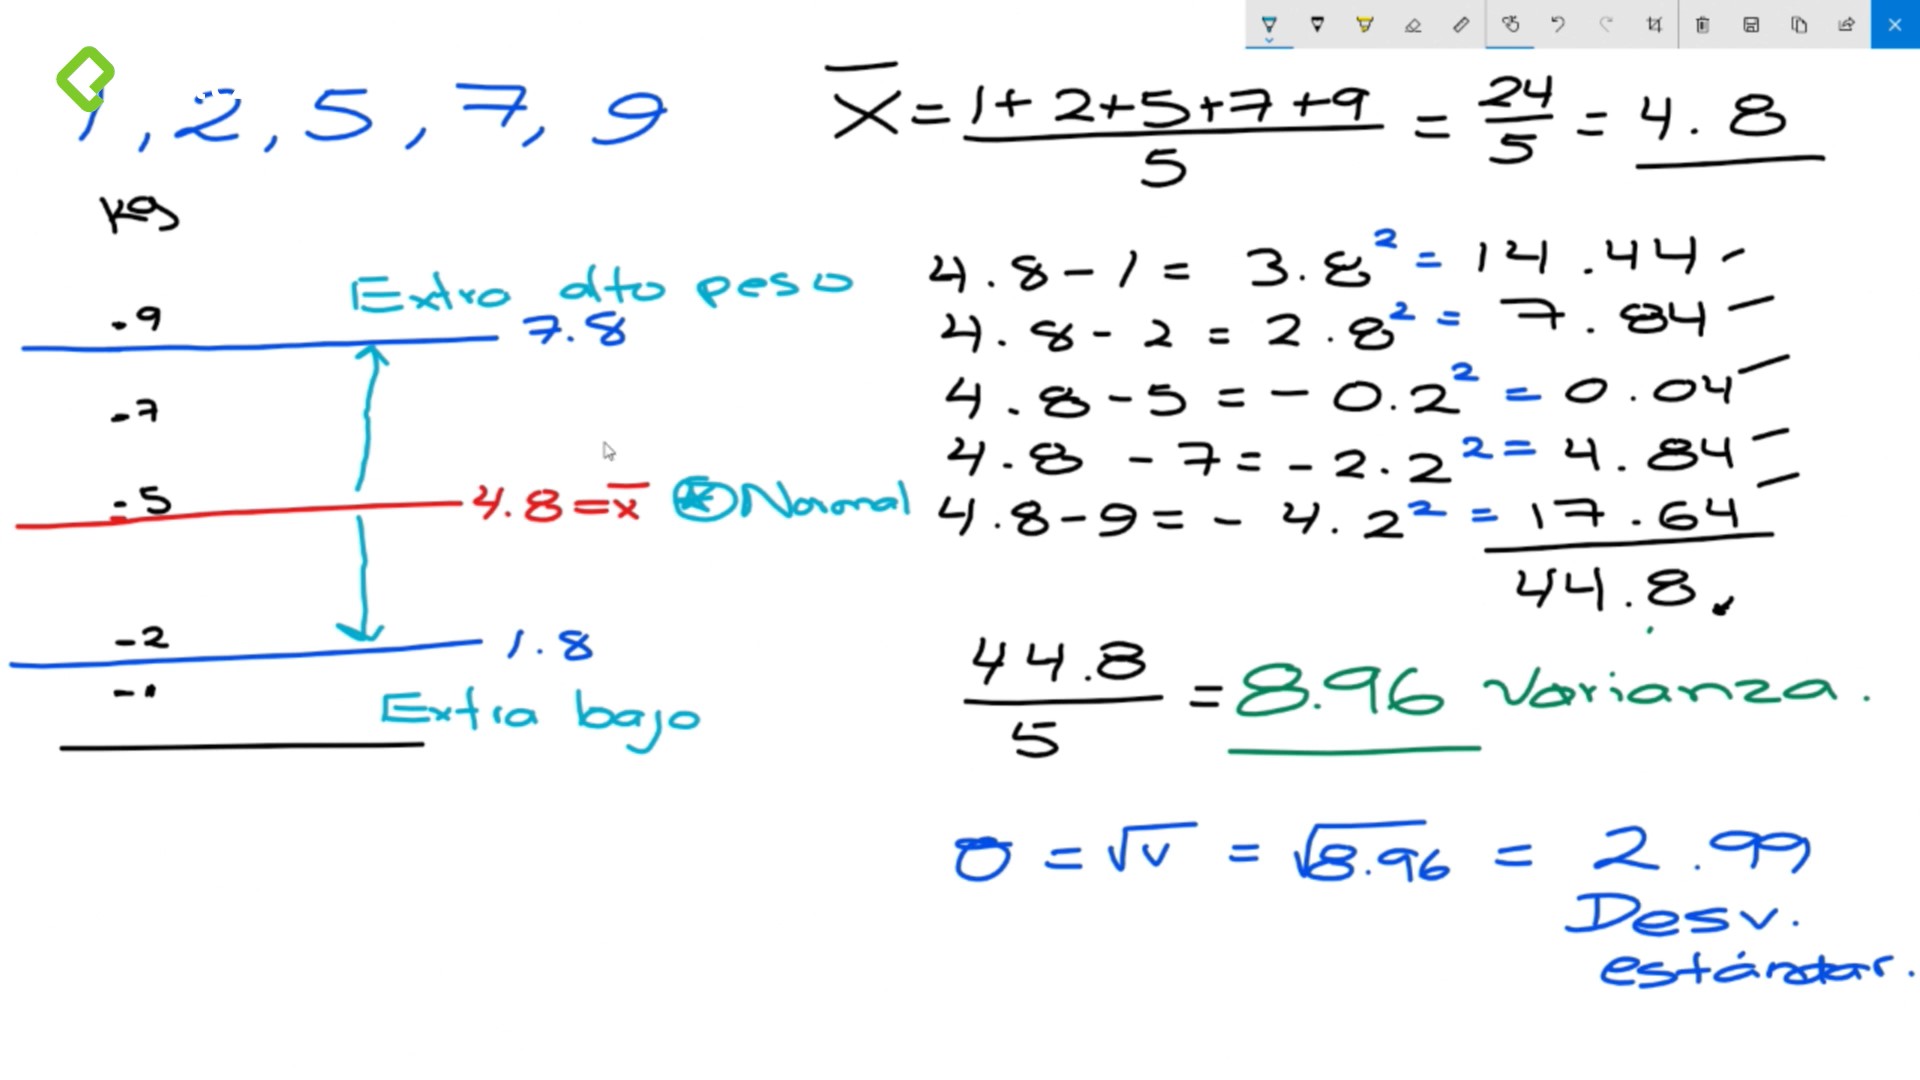 1, 2, 5, 7, 9
kgs
Extra alto peso
-9
7.8
-7
-5
4.8=x̅ * Normal
-2
1.8
-1
Extra bajo
X̅ = 1+2+5+7+9 / 5 = 24/5 = 4.8
4.8-1 = 3.8² = 14.44
4.8-2 = 2.8² = 7.84
4.8-5 = -0.2² = 0.04
4.8-7 = -2.2² = 4.84
4.8-9 = -4.2² = 17.64
44.8
44.8 / 5 = 8.96 Varianza.
σ = √v = √8.96 = 2.99
Desv.
estándar.